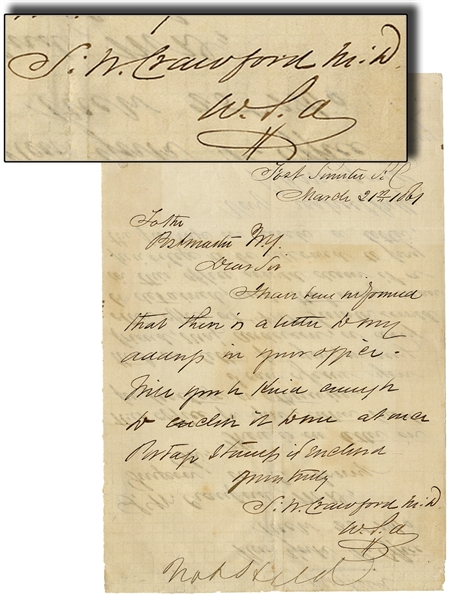 S. W. Crawford M.D.
U.S.A
Fort Sumter S.C
March 21st 1861
To the
Postmaster N.Y.
Dear Sir
I have been informed
that there is a letter to my
address in your office.
Will you be kind enough
to enclose it to me at once
Postage Stamp is enclosed
Yours truly
S. W. Crawford M.D
U.S.A